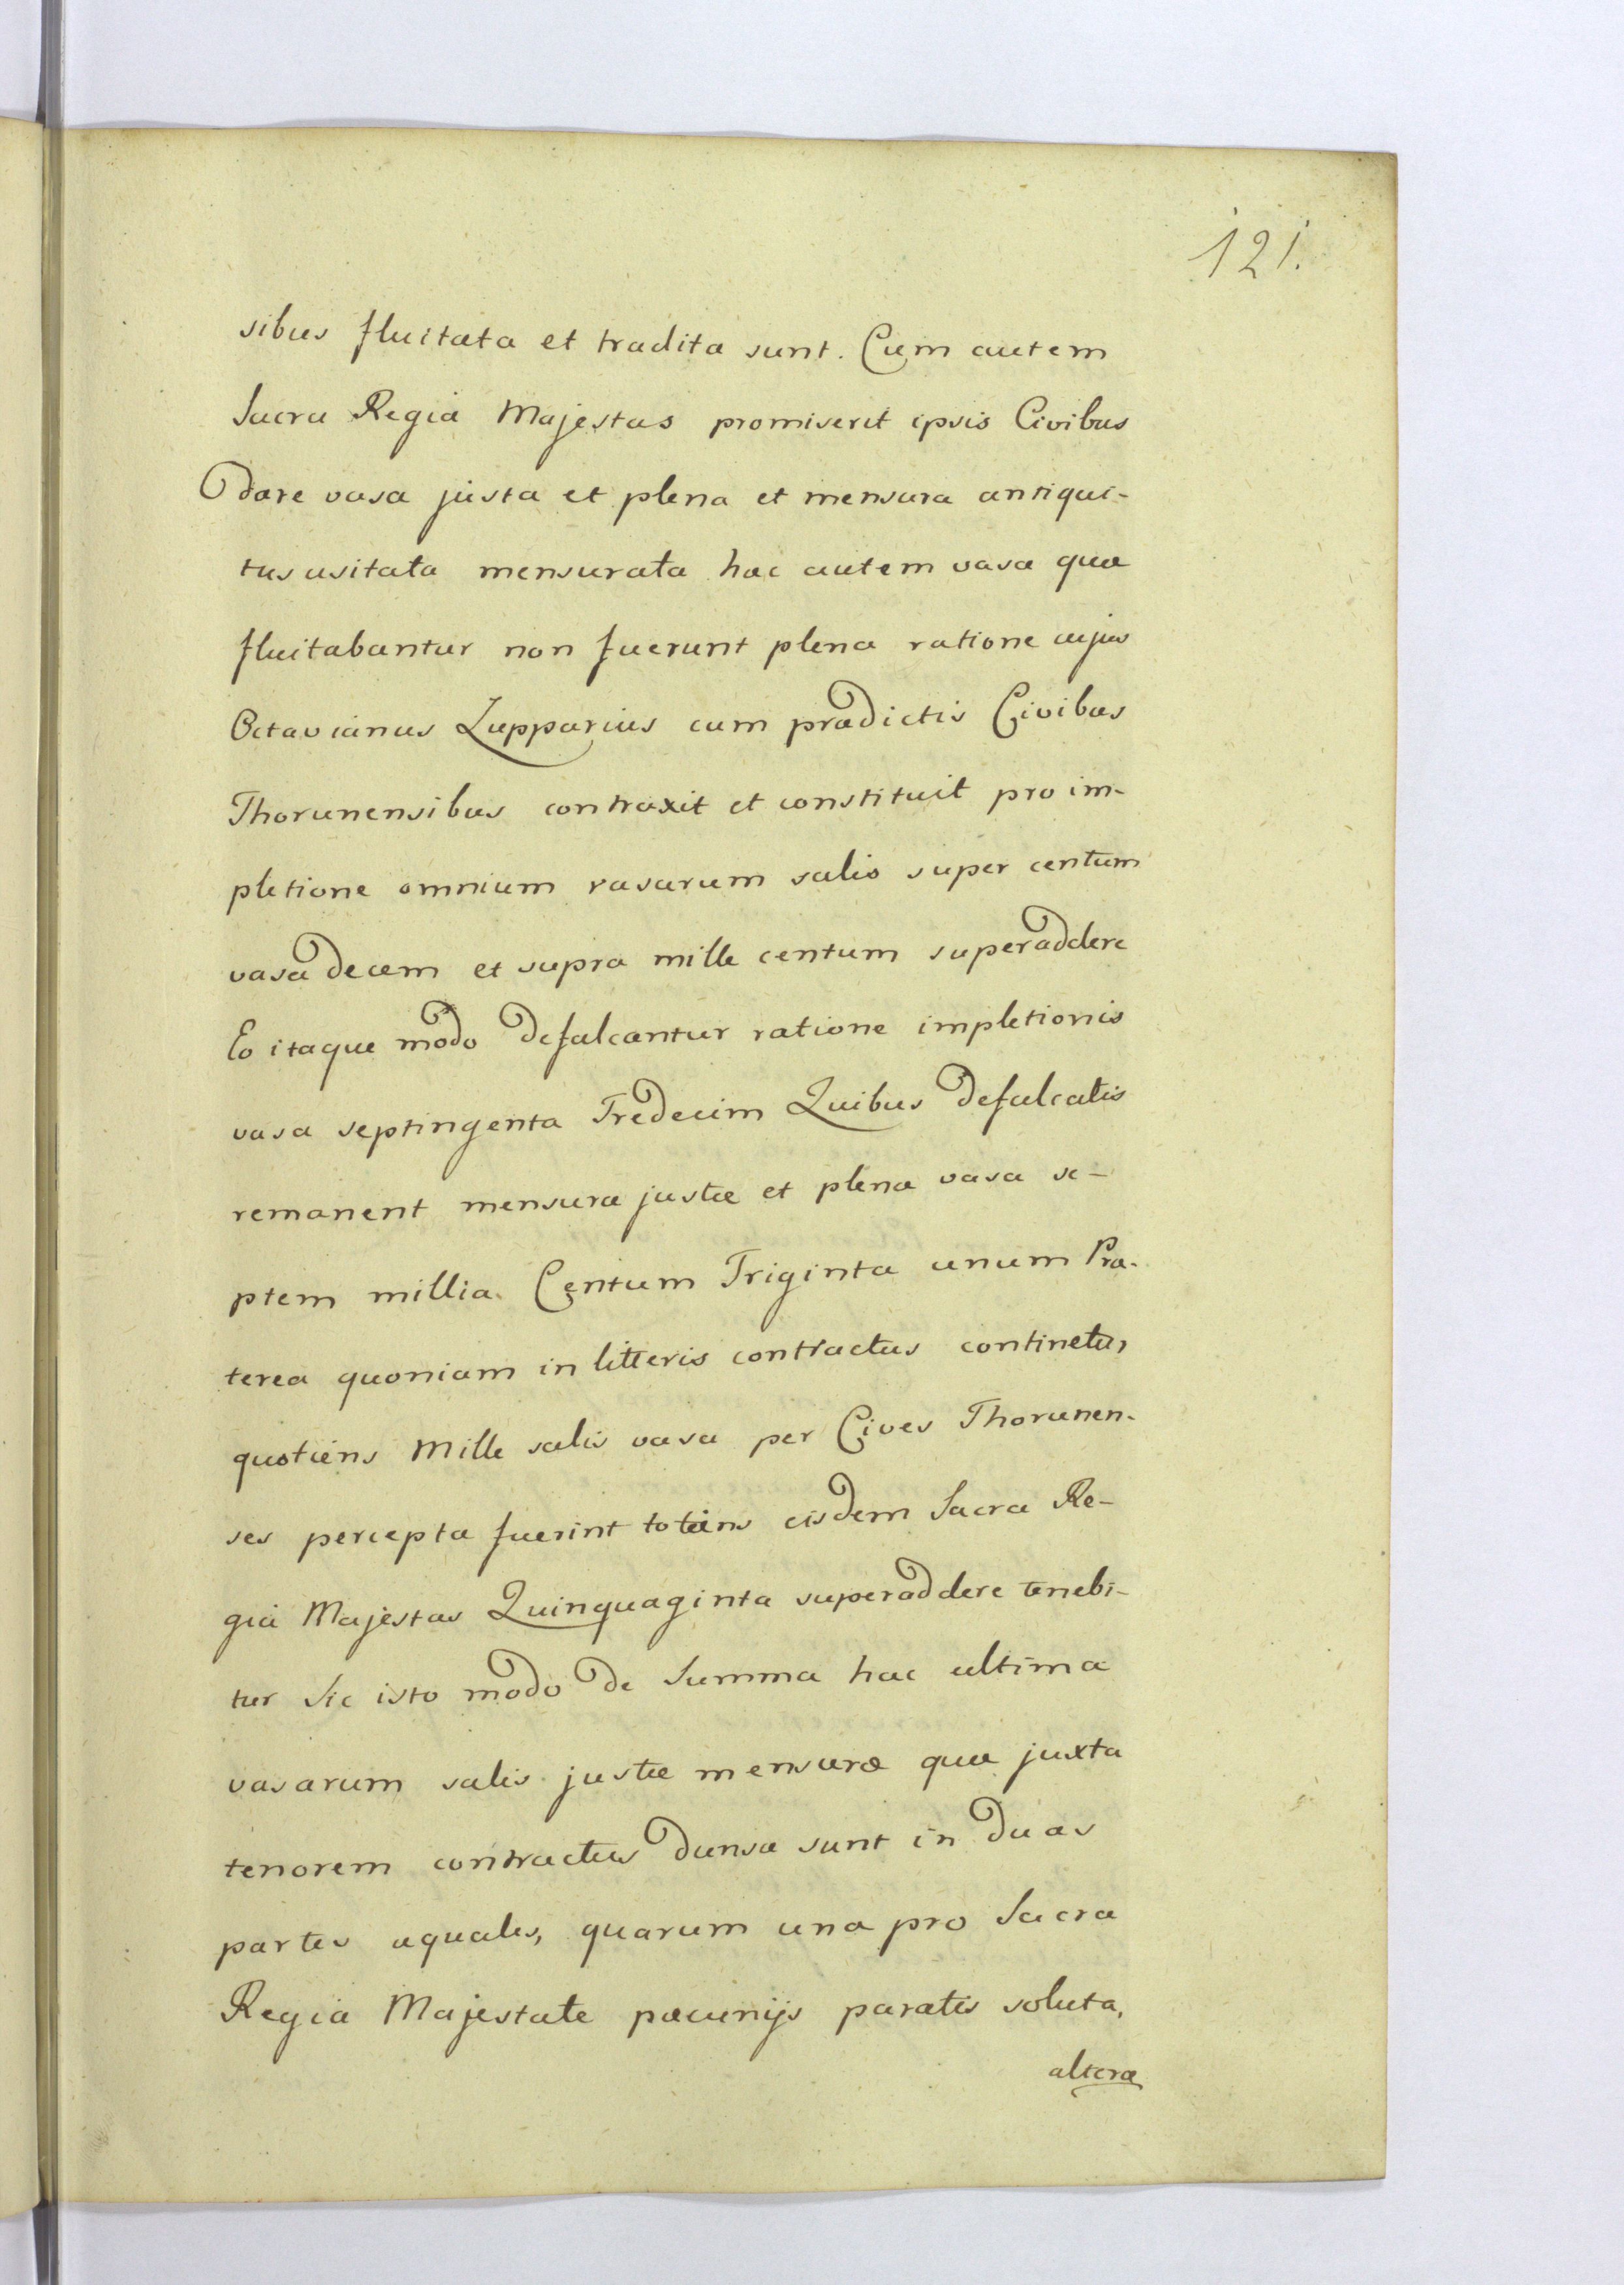 121.
sibus fluitata et tradita sunt. Cum autem
Sacra Regia Majestas promiserit ipsis Civibus
dare vasa justa et plena et mensura antiqui-
tus usitata mensurata hac autem vasa quæ
fluitabantur non fuerunt plena ratione cujus
Octavianus Zupparius cum prædictis Civibus
Thorunensibus contraxit et constituit pro im-
pletione omnium vasarum salis super centum
vasa decem et supra mille centum superaddere
Eo itaque modo defalcantur ratione impletionis
vasa septingenta Tredecim Quibus defalcatis
remanent mensuræ justæ et plenæ vasa se-
ptem millia. Centum Triginta unum Præ-
terea quoniam in litteris contractus continetur
quotiens Mille salis vasa per Cives Thorunen-
ses percepta fuerint totiens eisdem Sacra Re-
gia Majestas Quinquaginta superaddere tenebi-
tur Sic isto modo de Summa hac ultima
vasarum salis justæ mensuræ quæ juxta
tenorem contractus dunsa sunt in duas
partes æquales, quarum una pro Sacra
Regia Majestate pæcunijs paratis soluta,
altera